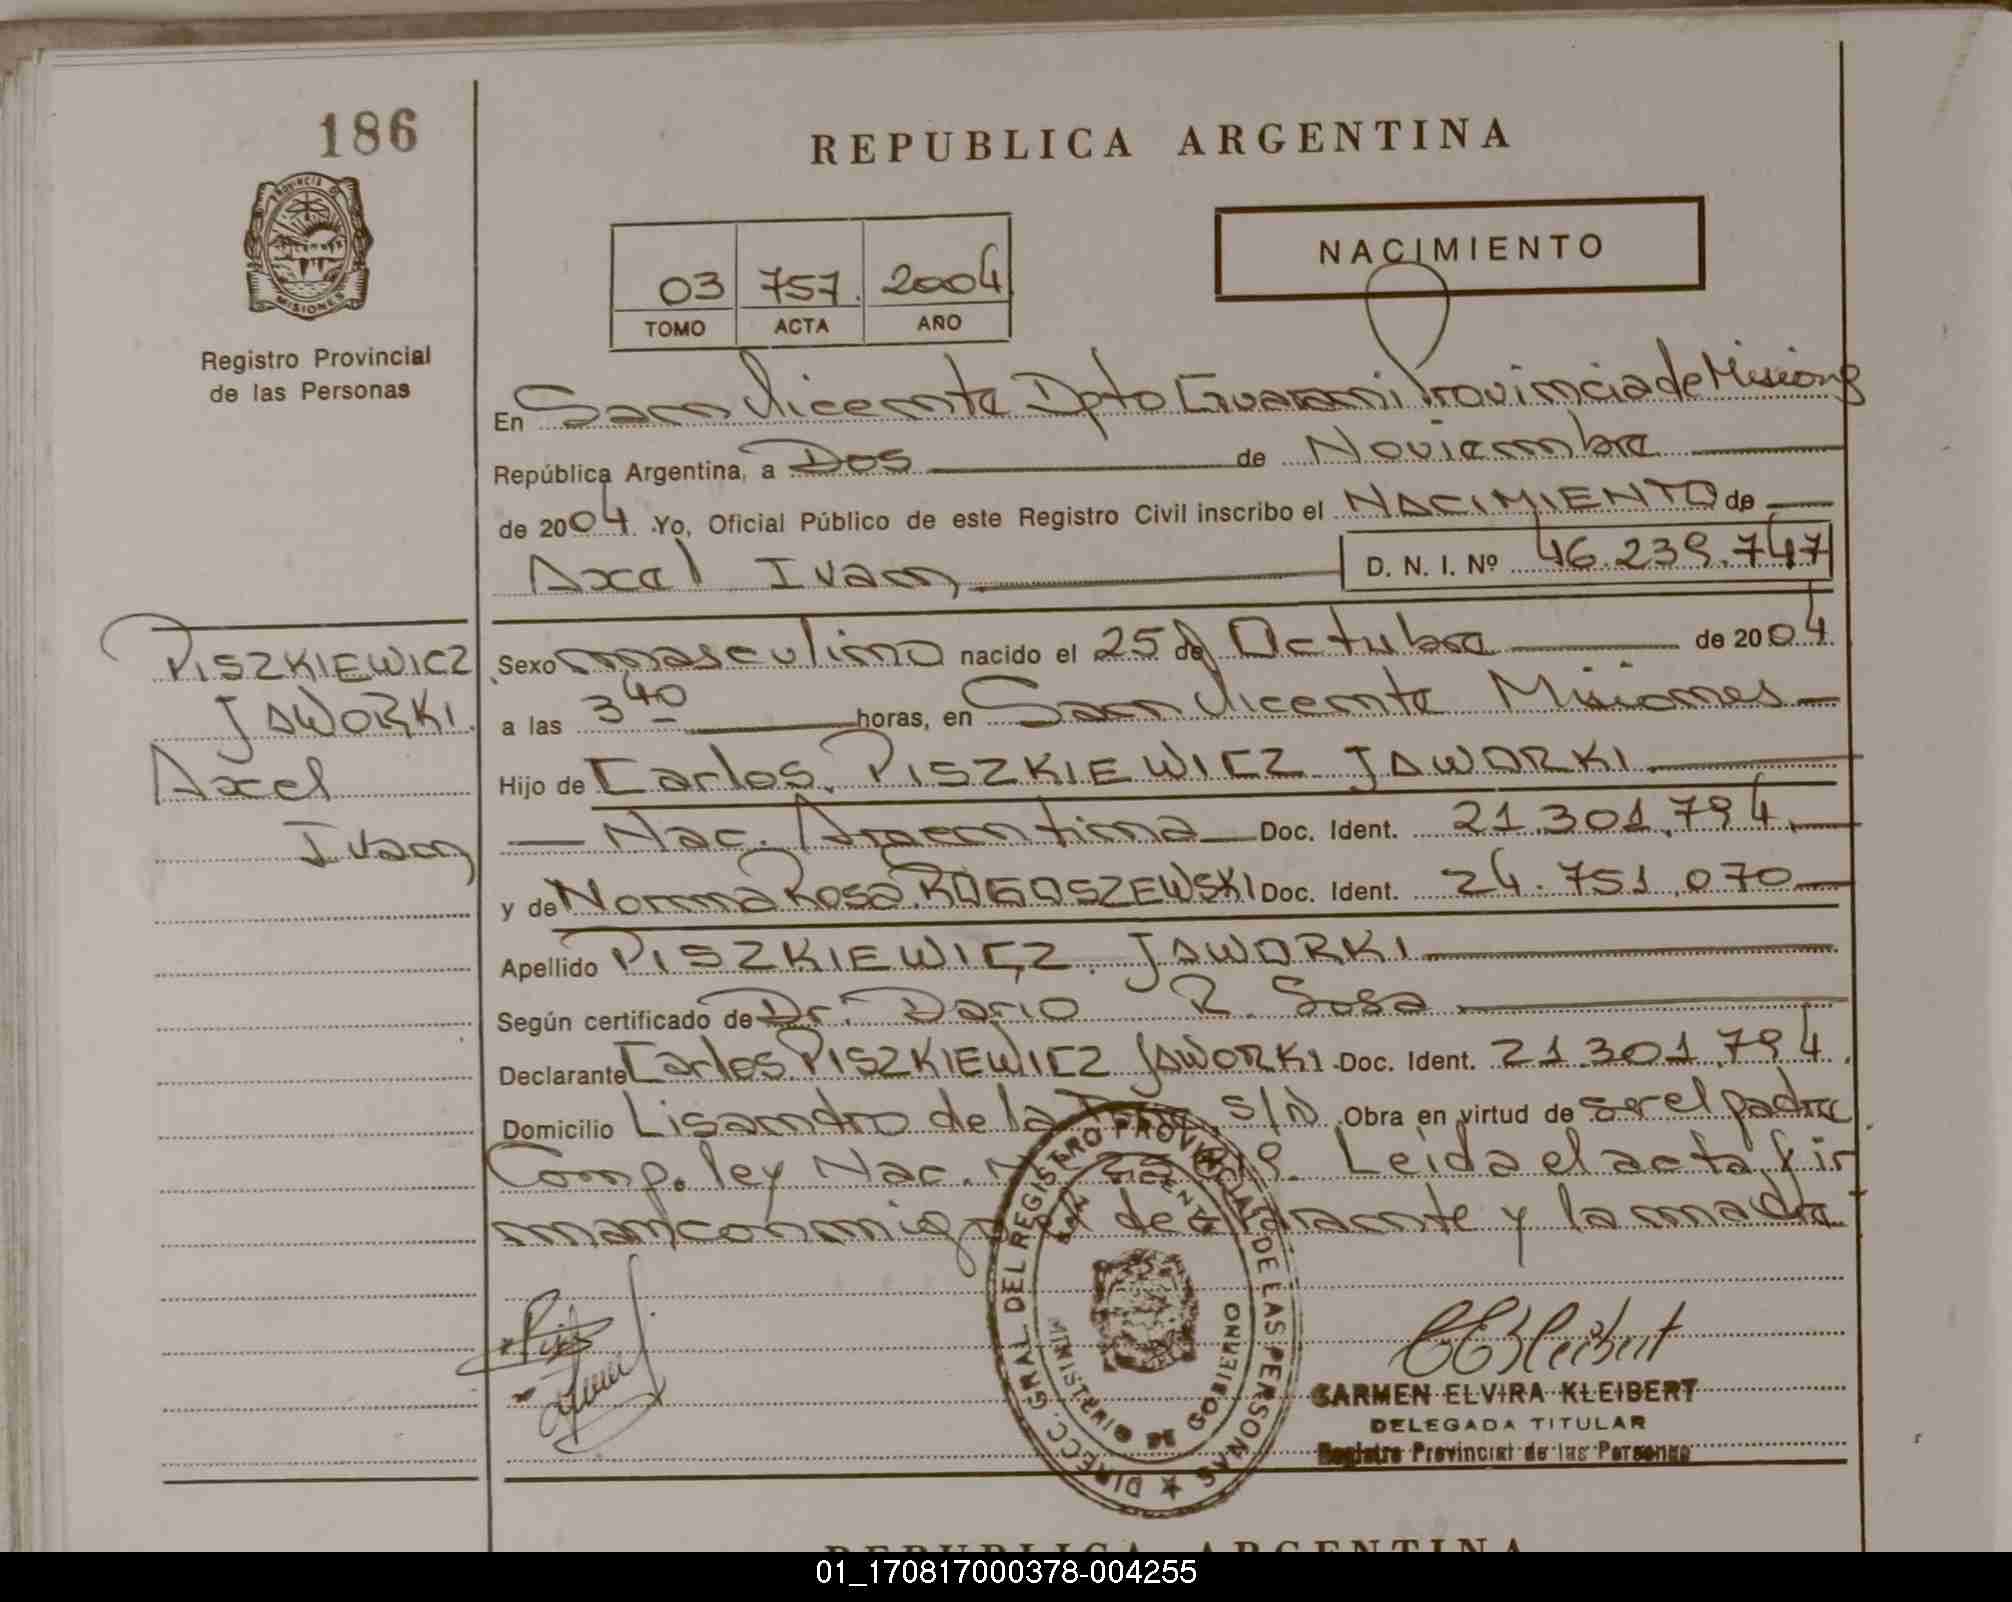 186
REPUBLICA ARGENTINA
PROVINCIA DE
MISIONES
Registro Provincial
de las Personas
NACIMIENTO
03 757. 2004
TOMO ACTA AÑO
En San Vicente Dpto Guarani Provincia de Misiones
República Argentina, a Dos de Noviembre
de 2004. Yo, Oficial Público de este Registro Civil inscribo el NACIMIENTO de
Axel Ivan, D. N. I. Nº 46.239.747
PISZKIEWICZ
JAWORKI.
Axel
Ivan
Sexo masculino nacido el 25 de Octubre de 2004.
a las 3 40 horas, en San Vicente Misiones
Hijo de Carlos PISZKIEWICZ JAWORKI
Nac. Argentina Doc. Ident. 21.301.794.
y de Norma Rosa ROGOSZEWSKI Doc. Ident. 24.751.070
Apellido PISZKIEWICZ JAWORKI
Según certificado de Dr. Dario R. Sosa
Declarante Carlos PISZKIEWICZ JAWORKI Doc. Ident. 21.301.794.
Domicilio Lisandro de la S/N Obra en virtud de ser el padre
Comp. ley Nac. Leida el acta, fir
man conmigo el declarante y la madre
DIRECC. GRAL. DEL REGISTRO PROVINCIAL DE LAS PERSONAS
SAN VICENTE
MINISTERIO DE GOBIERNO
CARMEN ELVIRA KLEIBERT
DELEGADA TITULAR
Registro Provincial de las Personas
REPUBLICA ARGENTINA
01_170817000378-004255